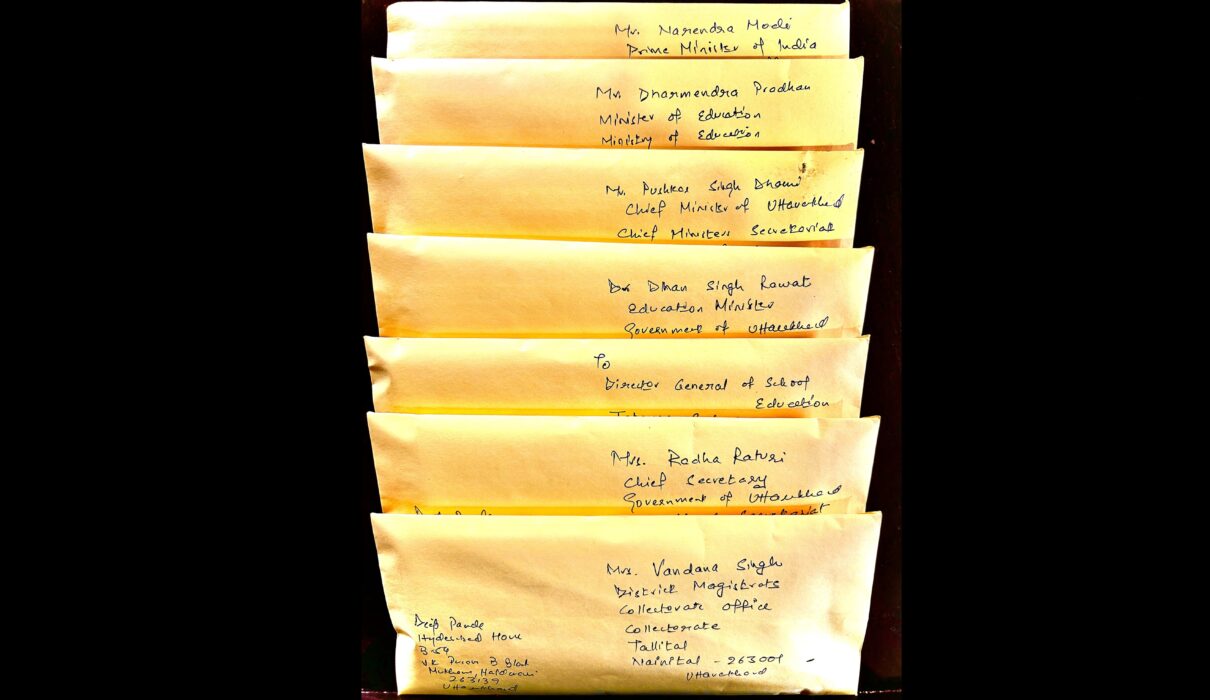 Mr. Narendra Modi
Prime Minister of India
Mr. Dharmendra Pradhan
Minister of Education
Ministry of Education
Mr. Pushkar Singh Dhami
Chief Minister of Uttarakhand
Chief Ministers Secretariat
Dr Dhan Singh Rawat
Education Minister
Government of Uttarakhand
To
Director General of School
Education
Mrs. Radha Raturi
Chief Secretary
Government of Uttarakhand
Secretariat
Mrs. Vandana Singh
District Magistrate
Collectorate Office
Collectorate
Tallital
Nainital - 263001
Uttarakhand
Pande
B-59
263139
Uttarakhand